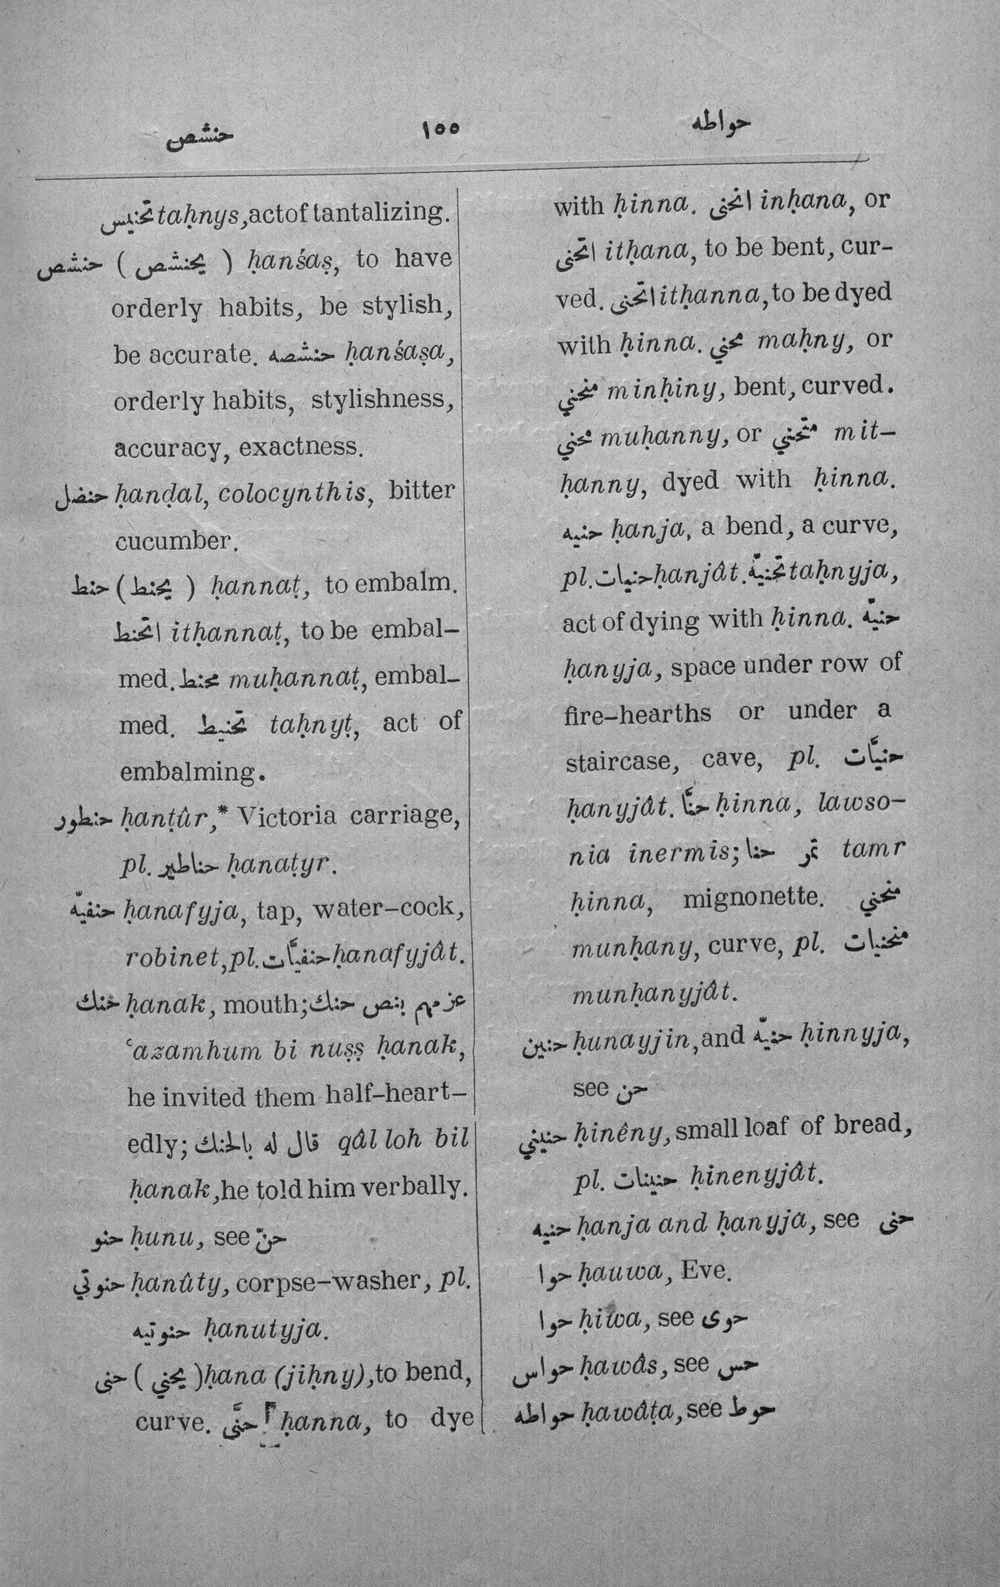 حنشص ١٥٥ حواطه
تحنيس taḥnys, act of tantalizing.
حنشص ( يحنشص ) ḥanśaṣ, to have
orderly habits, be stylish,
be accurate. حنشصه ḥanśaṣa,
orderly habits, stylishness,
accuracy, exactness.
حنضل ḥanḍal, colocynthis, bitter
cucumber.
حنط ( يحنط ) ḥannaṭ, to embalm.
اتحنط itḥannaṭ, to be embal-
med. محنط muḥannaṭ, embal-
med. تحنيط taḥnyṭ, act of
embalming.
حنطور ḥanṭûr,* Victoria carriage,
pl. حناطير ḥanaṭyr.
حنفيّه ḥanafyja, tap, water-cock,
robinet, pl. حنفيَّات ḥanafyjât.
حنك ḥanak, mouth; عزمهم بنص حنك
ʿazamhum bi nuṣṣ ḥanak,
he invited them half-heart-
edly; قال له بالحنك qâl loh bil
ḥanak, he told him verbally.
حنو ḥunu, see حنّ
حنوتي ḥanûty, corpse-washer, pl.
حنوتيه ḥanutyja.
حنى ( يحني ) ḥana (jiḥny), to bend,
curve. حنَّى ḥanna, to dye
with ḥinna. انحنى inḥana, or
اتحنى itḥana, to be bent, cur-
ved. اتحنى itḥanna, to be dyed
with ḥinna. محني maḥny, or
منحني minḥiny, bent, curved.
محني muḥanny, or متحني mit-
ḥanny, dyed with ḥinna.
حنيه ḥanja, a bend, a curve,
pl. حنيات ḥanjât. تحنيّه taḥnyja,
act of dying with ḥinna. حنيّه
ḥanyja, space under row of
fire-hearths or under a
staircase, cave, pl. حنيَّات
ḥanyjât. حنَّا ḥinna, lawso-
nia inermis; تمر حنا tamr
ḥinna, mignonette. منحني
munḥany, curve, pl. منحنيات
munḥanyjât.
حنين ḥunayjin, and حنيّه ḥinnyja,
see حن
حنيني ḥinêny, small loaf of bread,
pl. حنينات ḥinenyjât.
حنيه ḥanja and ḥanyja, see حنى
حوا ḥauwa, Eve.
حوا ḥiwa, see حوى
حواس ḥawâs, see حس
حواطه ḥawâṭa, see حوط